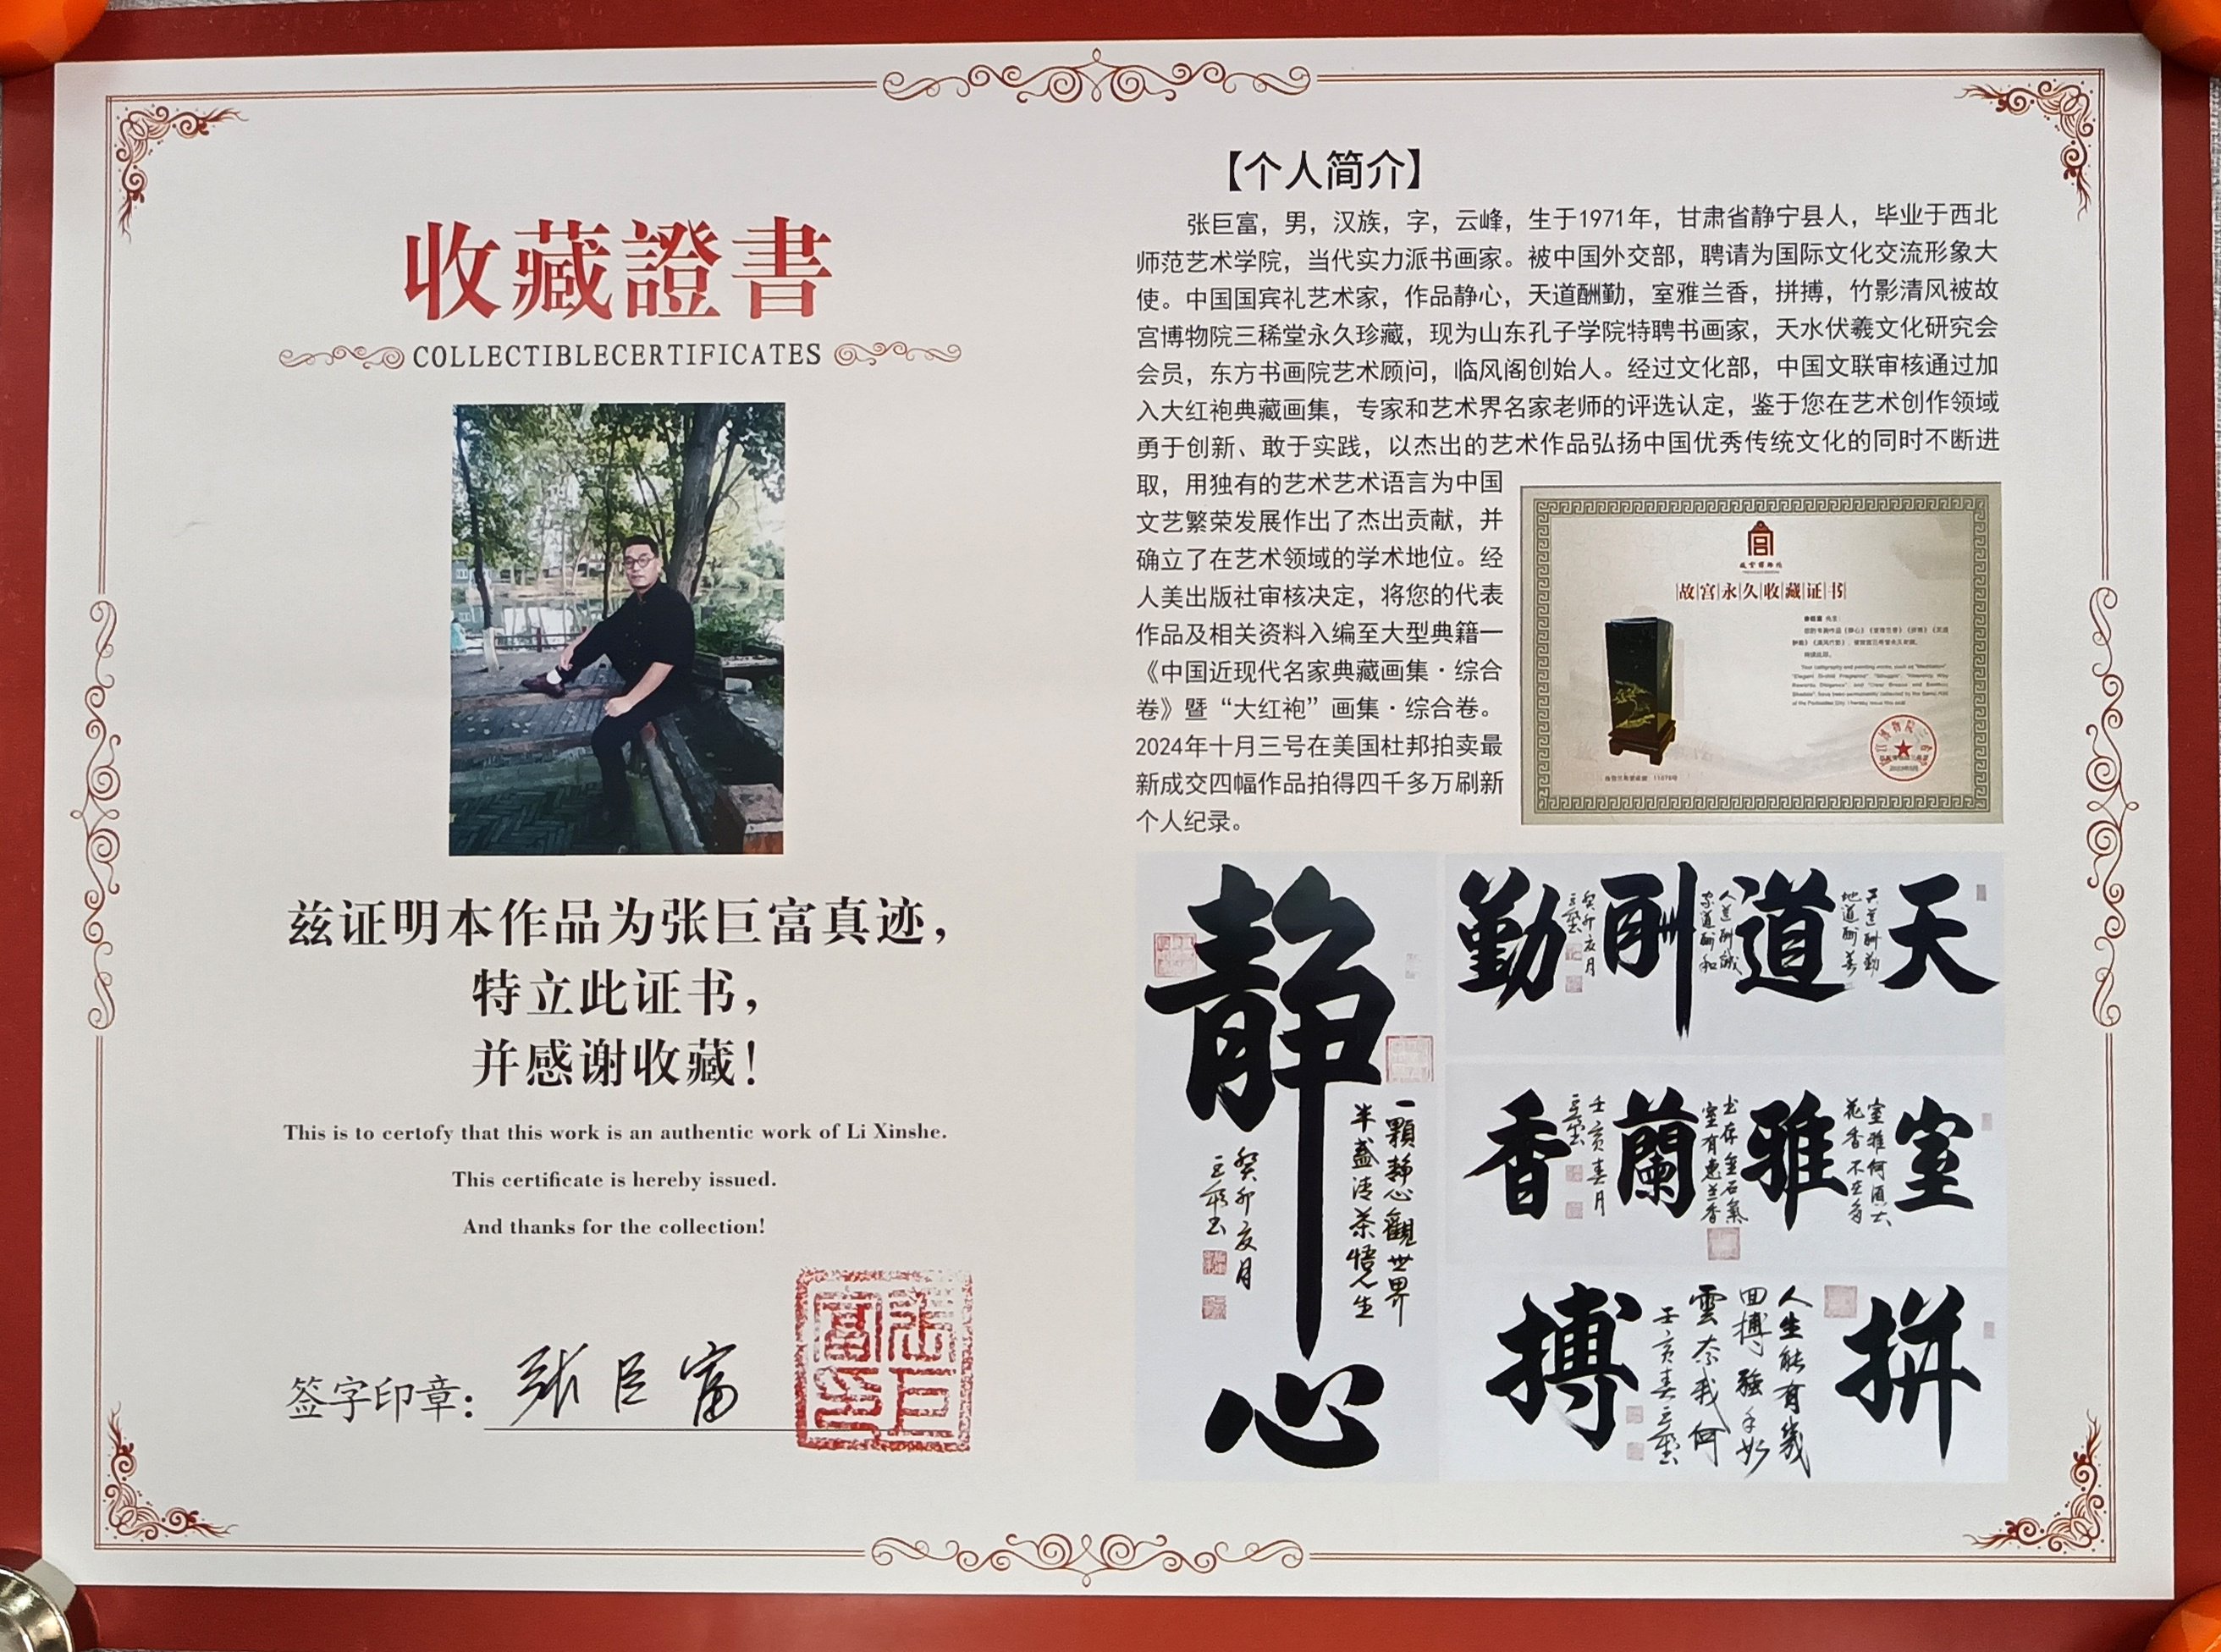 收藏證書
COLLECTIBLECERTIFICATES
兹证明本作品为张巨富真迹，
特立此证书，
并感谢收藏！
This is to certofy that this work is an authentic work of Li Xinshe.
This certificate is hereby issued.
And thanks for the collection!
签字印章：张巨富
【个人简介】
张巨富，男，汉族，字，云峰，生于1971年，甘肃省静宁县人，毕业于西北
师范艺术学院，当代实力派书画家。被中国外交部，聘请为国际文化交流形象大
使。中国国宾礼艺术家，作品静心，天道酬勤，室雅兰香，拼搏，竹影清风被故
宫博物院三稀堂永久珍藏，现为山东孔子学院特聘书画家，天水伏羲文化研究会
会员，东方书画院艺术顾问，临风阁创始人。经过文化部，中国文联审核通过加
入大红袍典藏画集，专家和艺术界名家老师的评选认定，鉴于您在艺术创作领域
勇于创新、敢于实践，以杰出的艺术作品弘扬中国优秀传统文化的同时不断进
取，用独有的艺术艺术语言为中国
文艺繁荣发展作出了杰出贡献，并
确立了在艺术领域的学术地位。经
人美出版社审核决定，将您的代表
作品及相关资料入编至大型典籍一
《中国近现代名家典藏画集·综合
卷》暨“大红袍”画集·综合卷。
2024年十月三号在美国杜邦拍卖最
新成交四幅作品拍得四千多万刷新
个人纪录。
故宫博物院
故宫永久收藏证书
静心
一顆靜心觀世界
半盏清茶悟人生
癸卯亥月
天道酬勤
天道酬勤
地道酬善
人道酬誠
癸卯亥月
室雅蘭香
室雅何須大
花香不在多
壬亥春月
拼搏
人生能有幾
回搏
雲奈我何
壬亥春